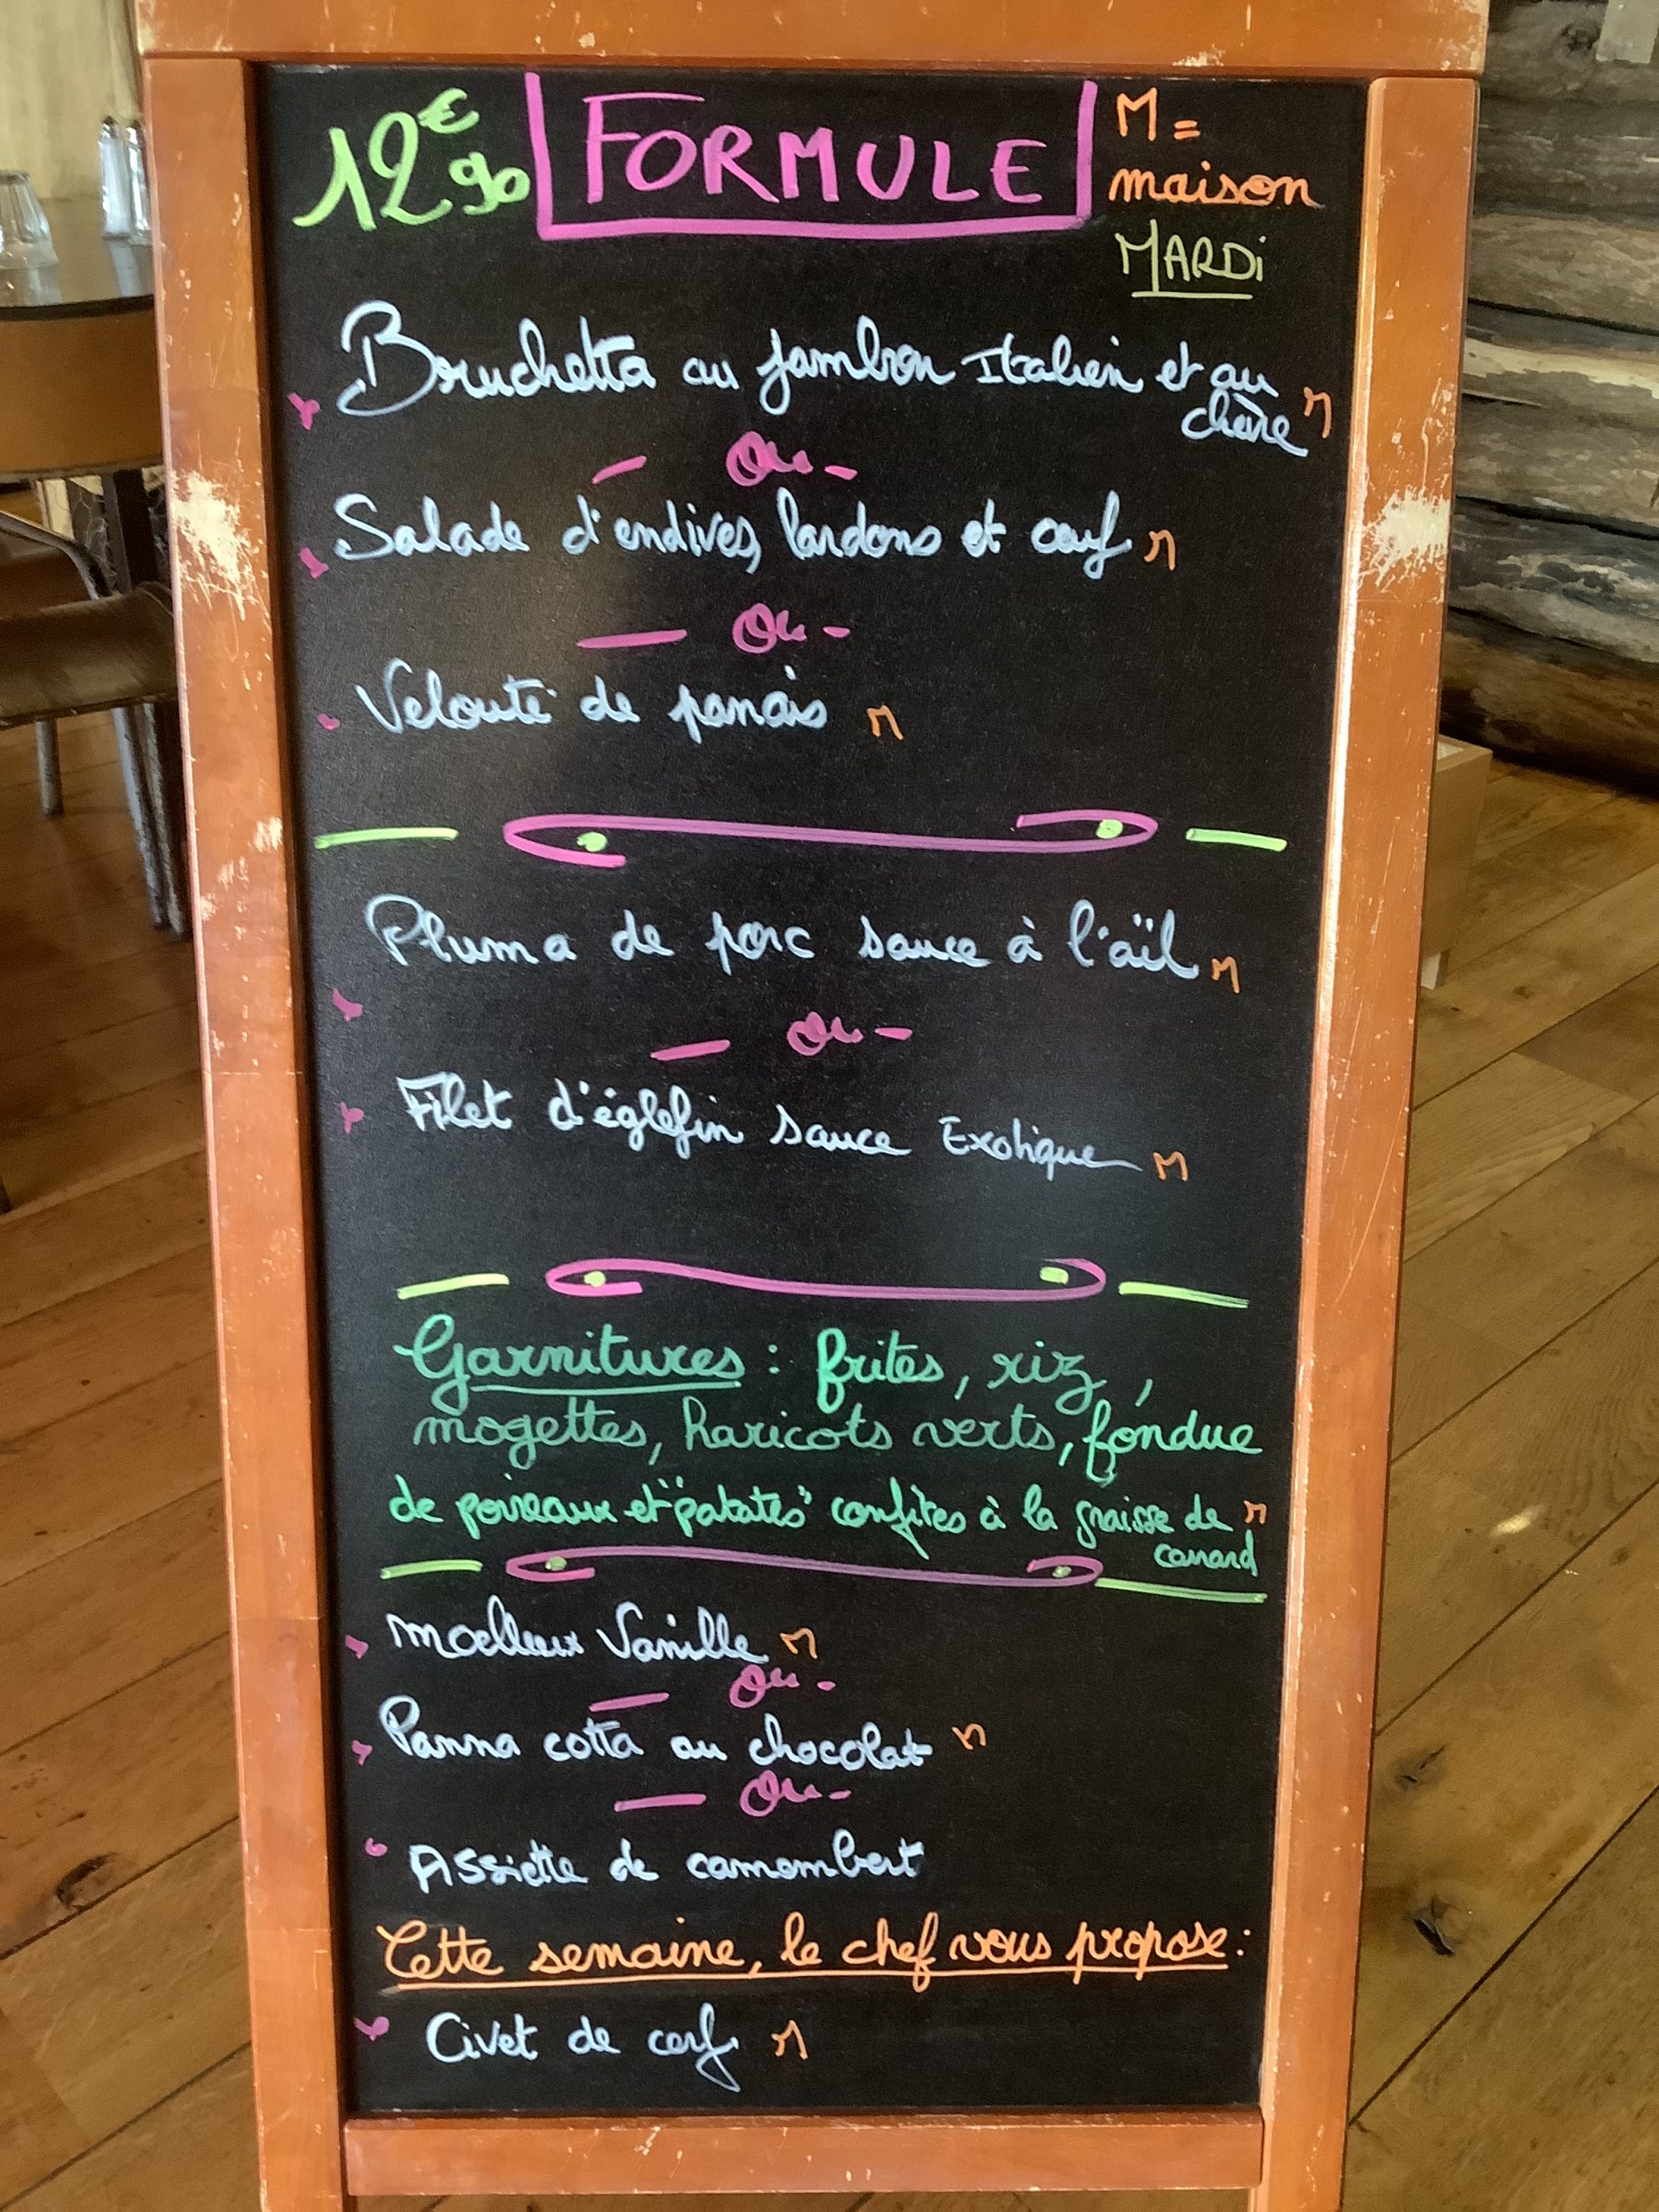 12€90 FORMULE M =
maison
MARDi
Bruchetta au jambon Italien et au
chèvre M
- Ou -
Salade d'endives, lardons et œuf M
- Ou -
Velouté de panais M
Pluma de porc sauce à l'aïl M
- Ou -
Filet d'églefin sauce Exotique M
Garnitures : frites, riz,
mogettes, haricots verts, fondue
de poireaux et "patates" confites à la graisse de M
canard
Moelleux Vanille M
- Ou -
Panna cotta au chocolat M
- Ou -
Assiette de camembert
Cette semaine, le chef vous propose :
Civet de cerf M